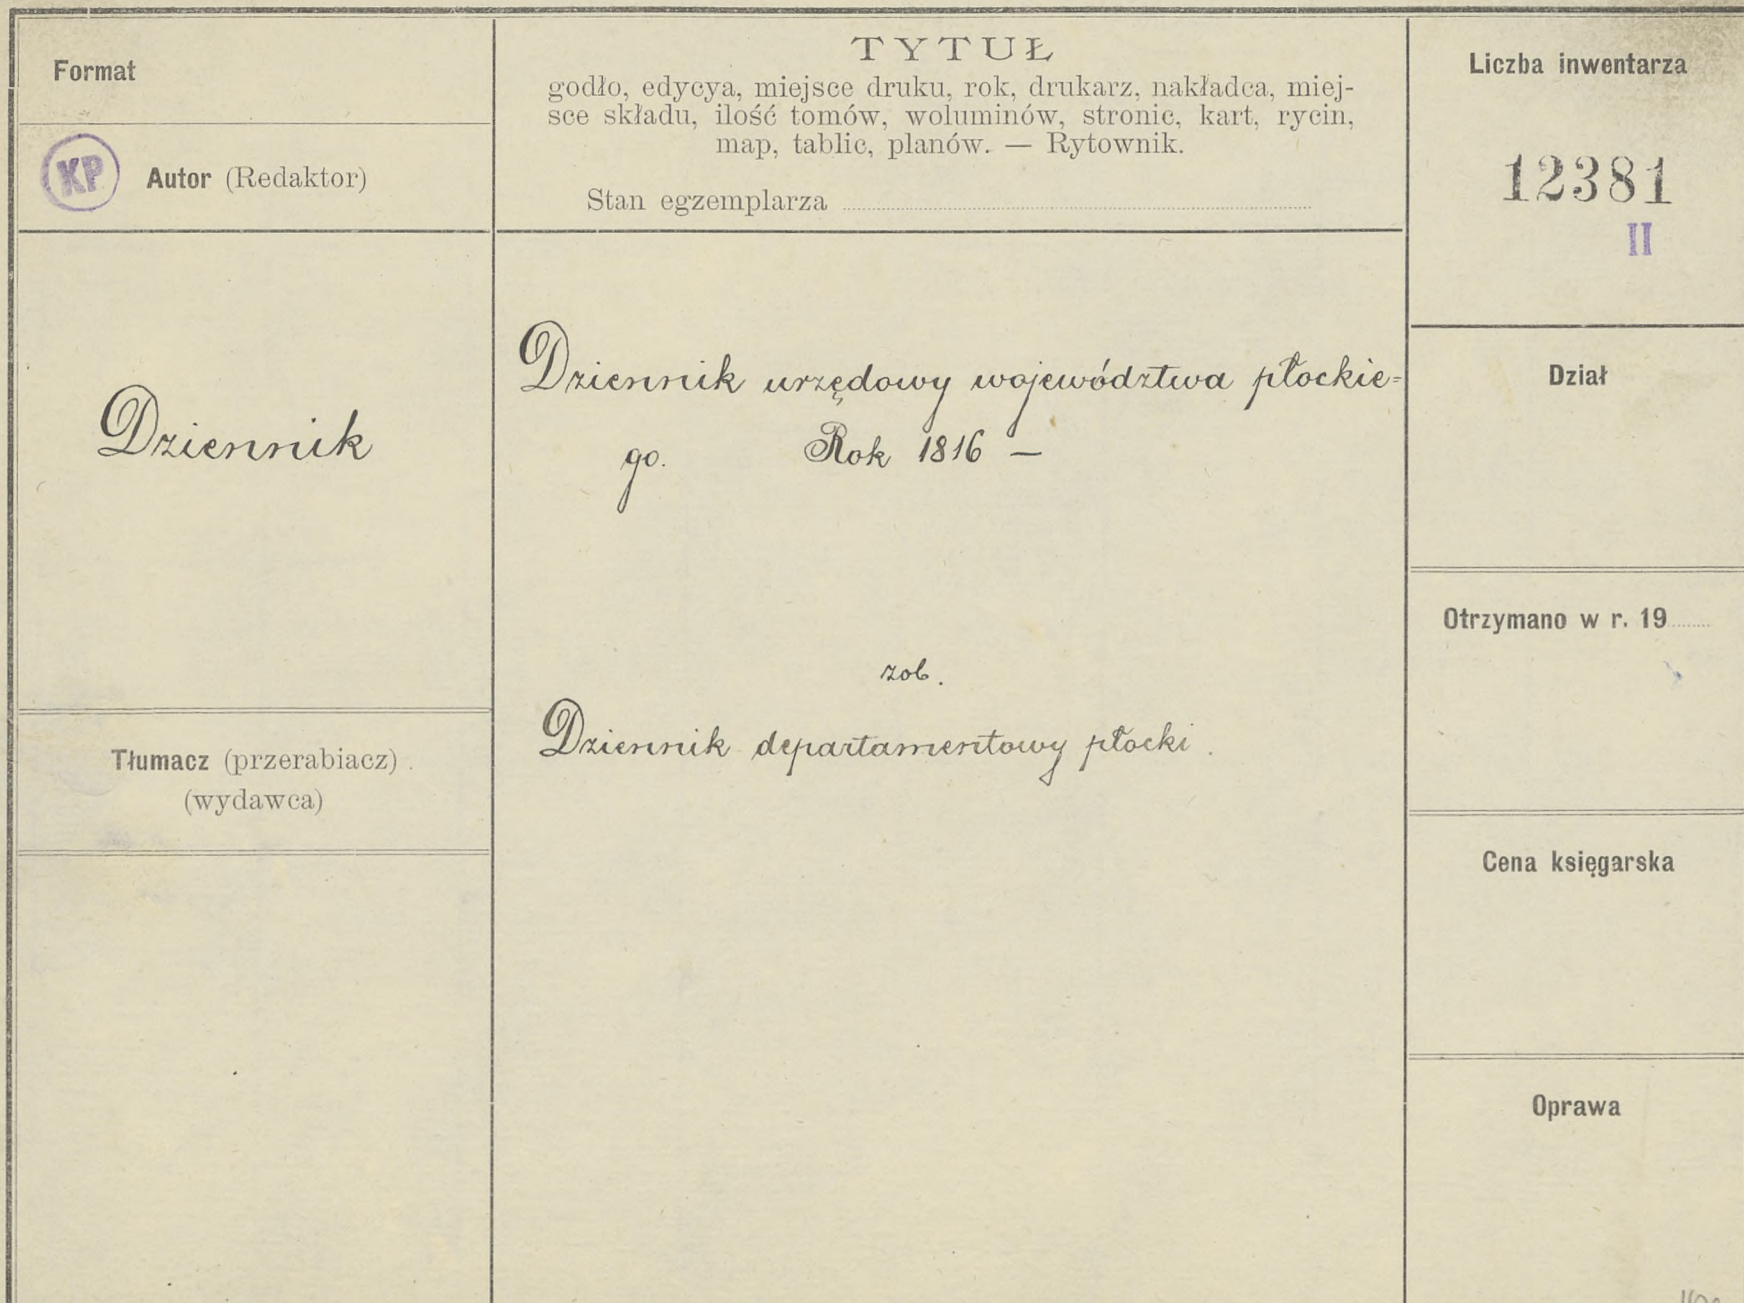 Format
KP
Autor (Redaktor)
Dziennik
Tłumacz (przerabiacz)
(wydawca)
TYTUŁ
godło, edycya, miejsce druku, rok, drukarz, nakładca, miej-
sce składu, ilość tomów, woluminów, stronic, kart, rycin,
map, tablic, planów. — Rytownik.
Stan egzemplarza
Dziennik urzędowy województwa płockie=
go. Rok 1816 —
zob.
Dziennik departamentowy płocki.
Liczba inwentarza
12381
II
Dział
Otrzymano w r. 19
Cena księgarska
Oprawa